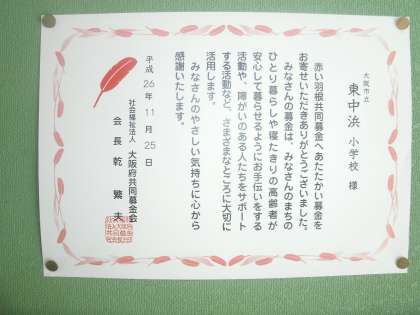 大阪市立
東中浜 小学校 様
赤い羽根共同募金へあたたかい募金を
お寄せいただきありがとうございました。
みなさんの募金は、みなさんのまちの
ひとり暮らしや寝たきりの高齢者が
安心して暮らせるようにお手伝いをする
活動や、障がいのある人たちをサポート
する活動など、さまざまなところに大切に
活用します。
みなさんのやさしい気持ちに心から
感謝いたします。
平成 26年 11月 25日
社会福祉法人 大阪府共同募金会
会長 乾 繁夫